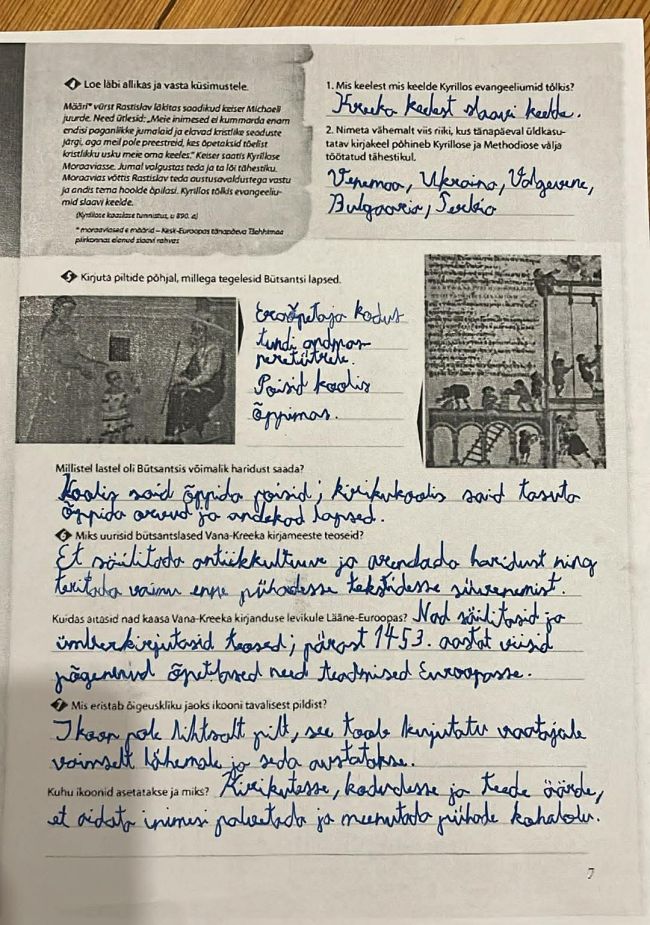 4 Loe läbi allikas ja vasta küsimustele.
Määri* vürst Rastislav läkitas saadikud keiser Michaeli
juurde. Need ütlesid: „Meie inimesed ei kummarda enam
endisi paganlikke jumalaid ja elavad kristlike seaduste
järgi, aga meil pole preestreid, kes õpetaksid tõelist
kristlikku usku meie oma keeles.” Keiser saatis Kyrillose
Moraaviasse. Jumal valgustas teda ja ta lõi tähestiku.
Moraavias võttis Rastislav teda austusavaldustega vastu
ja andis tema hoolde õpilasi. Kyrillos tõlkis evangeeliu-
mid slaavi keelde.
(Kyrillose kaaslase tunnistus, u 890. a)
* moraavlased e määrid – Kesk-Euroopas tänapäeva Tšehhimaa
piirkonnas elanud slaavi rahvas
1. Mis keelest mis keelde Kyrillos evangeeliumid tõlkis?
Kreeka keelest slaavi keelde.
2. Nimeta vähemalt viis riiki, kus tänapäeval üldkasu-
tatav kirjakeel põhineb Kyrillose ja Methodiose välja
töötatud tähestikul.
Venemaa, Ukraina, Valgevene,
Bulgaaria, Serbia
5 Kirjuta piltide põhjal, millega tegelesid Bütsantsi lapsed.
Eraõpetaja kodus
tundi andmas
peretütrele.
Poisid koolis
õppimas.
Millistel lastel oli Bütsantsis võimalik haridust saada?
Koolis said õppida poisid; kirikukoolis said tasuta
õppida orvud ja andekad lapsed.
6 Miks uurisid bütsantslased Vana-Kreeka kirjameeste teoseid?
Et säilitada antiikkultuuri ja arendada haridust ning
teritada vaimu enne pühadesse tekstidesse süvenemist.
Kuidas aitasid nad kaasa Vana-Kreeka kirjanduse levikule Lääne-Euroopas? Nad säilitasid ja
ümberkirjutasid teosed; pärast 1453. aastat viisid
põgenenud õpetlased need teadmised Euroopasse.
7 Mis eristab õigeuskliku jaoks ikooni tavalisest pildist?
Ikoon pole lihtsalt pilt, see toob kujutatu vaatajale
vaimselt lähemale ja seda austatakse.
Kuhu ikoonid asetatakse ja miks? Kirikutesse, kodudesse ja teede äärde,
et aidata inimesi palvetada ja meenutada pühade kohalolu.
7